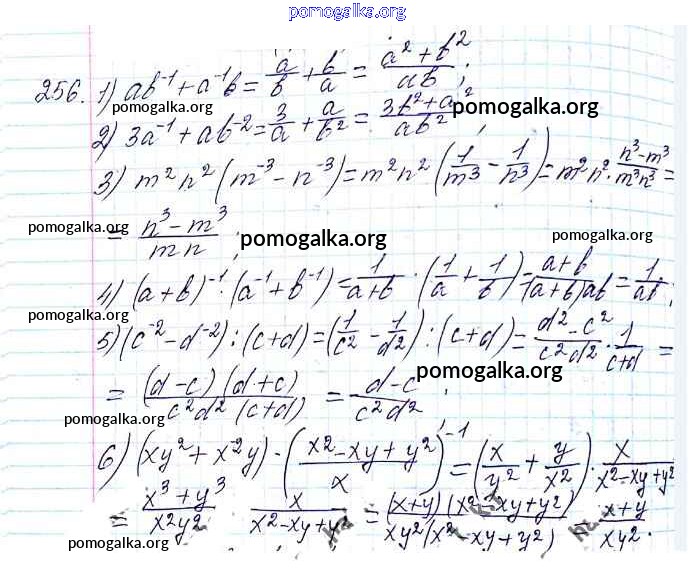 pomogalka.org
256. 1) ab⁻¹ + a⁻¹b = a/b + b/a = (a² + b²)/(ab);
pomogalka.org pomogalka.org
2) 3a⁻¹ + ab⁻² = 3/a + a/b² = (3b² + a²)/(ab²);
3) m²n²(m⁻³ − n⁻³) = m²n²(1/m³ − 1/n³) = m²n² · (n³ − m³)/(m³n³) =
= (n³ − m³)/(mn);
pomogalka.org pomogalka.org pomogalka.org
4) (a+b)⁻¹ · (a⁻¹ + b⁻¹) = 1/(a+b) · (1/a + 1/b) = (a+b)/((a+b)ab) = 1/(ab);
pomogalka.org
5) (c⁻² − d⁻²) : (c+d) = (1/c² − 1/d²) : (c+d) = (d² − c²)/(c²d²) · 1/(c+d) =
pomogalka.org
= ((d−c)(d+c))/(c²d²(c+d)) = (d−c)/(c²d²);
pomogalka.org
6) (xy² + x⁻²y) · ((x² − xy + y²)/x)⁻¹ = (x/y² + y/x²) · x/(x² − xy + y²)
= (x³ + y³)/(x²y²) · x/(x² − xy + y²) = ((x+y)(x² − xy + y²))/(xy²(x² − xy + y²)) = (x+y)/(xy²).
pomogalka.org